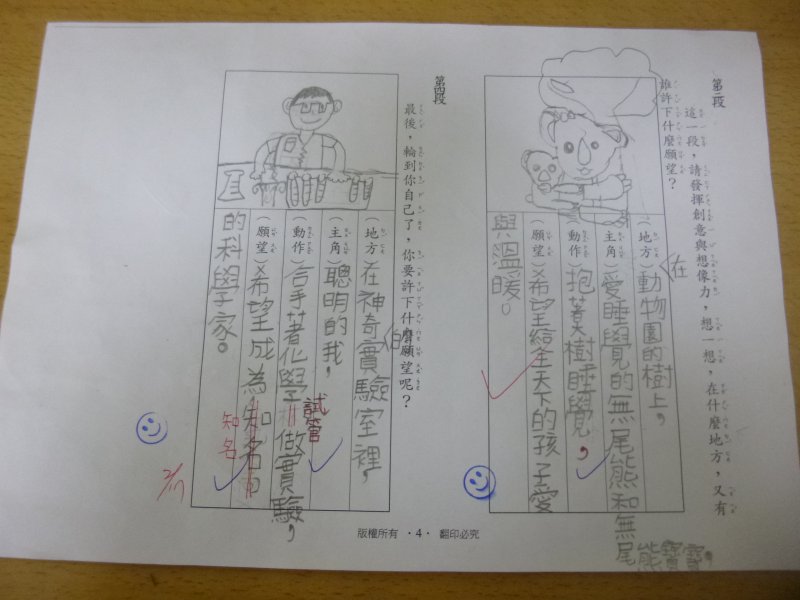 第三段
這一段，請發揮創意與想像力，想一想，在什麼地方，又有
誰許下什麼願望？
（地方）在動物園的樹上，
（主角）愛睡覺的無尾熊和無尾熊寶寶，
（動作）抱著大樹睡覺，
（願望）希望給全天下的孩子愛
與溫暖。
第四段
最後，輪到你自己了，你要許下什麼願望呢？
（地方）在神奇的實驗室裡，
（主角）聰明的我，
（動作）合手著化學試管做實驗，
（願望）希望成為知名
知名
的科學家。
版權所有 ·4· 翻印必究